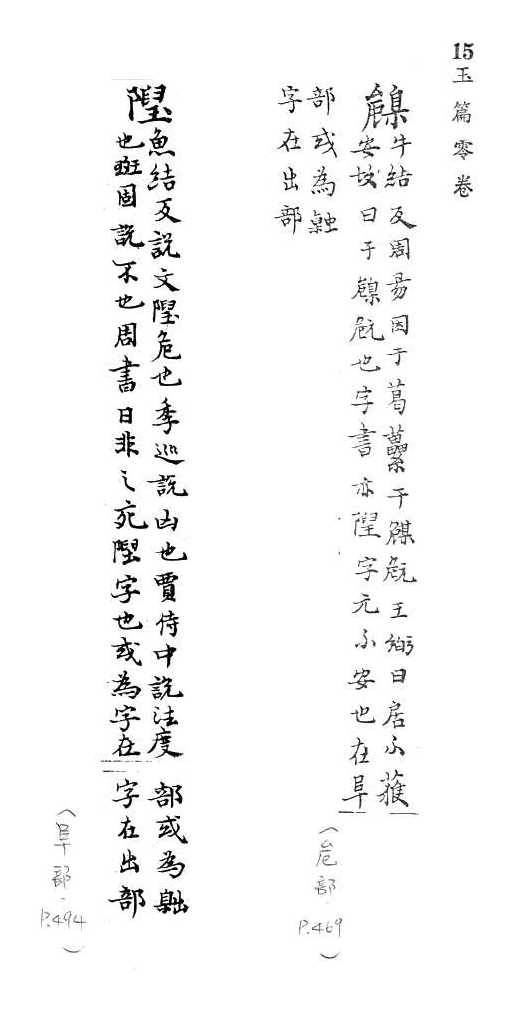 15 玉篇零卷
牛結反周易困于葛藟于臲卼王弼曰居不獲
安故曰于臲卼也字書亦隉字元不安也在阜
部或為
字在出部
(危部 P.469)
隉魚結反說文隉危也季巡說凶也賈侍中說法度
也班固說不也周書曰非之死隉字也或為字在
部或為
字在出部
(阜部 P.494)